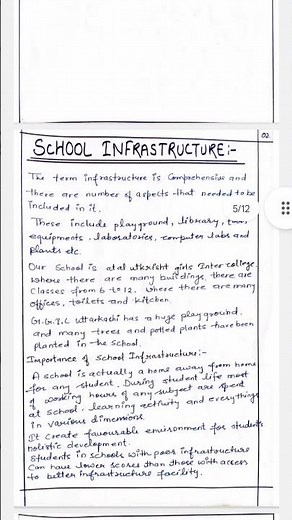 02
SCHOOL INFRASTRUCTURE:-
The term infrastructure is Comprehensive and
there are number of aspects that needed to be
included in it.
5/12
These include playground, library,
equipments. laboratories, computer labs and
plants etc.
Our School is atal utkrisht girls Inter college.
where there are many buildings, there are
classes from 6 to 12. where there are many
offices, toilets and kitchen.
G.G.I.C uttarkashi has a huge playground.
and many trees and potted plants have been
planted in the School.
Importance of School Infrastructure:-
A school is actually a home away from home
for any student. During student life most
of working hours of any subject are spent
at school. learning activity and everything
in various dimensions.
It create favourable environment for students
holistic development.
Students in schools with poor infrastructure
Can have lower scores than those with access
to better infrastructure facility.